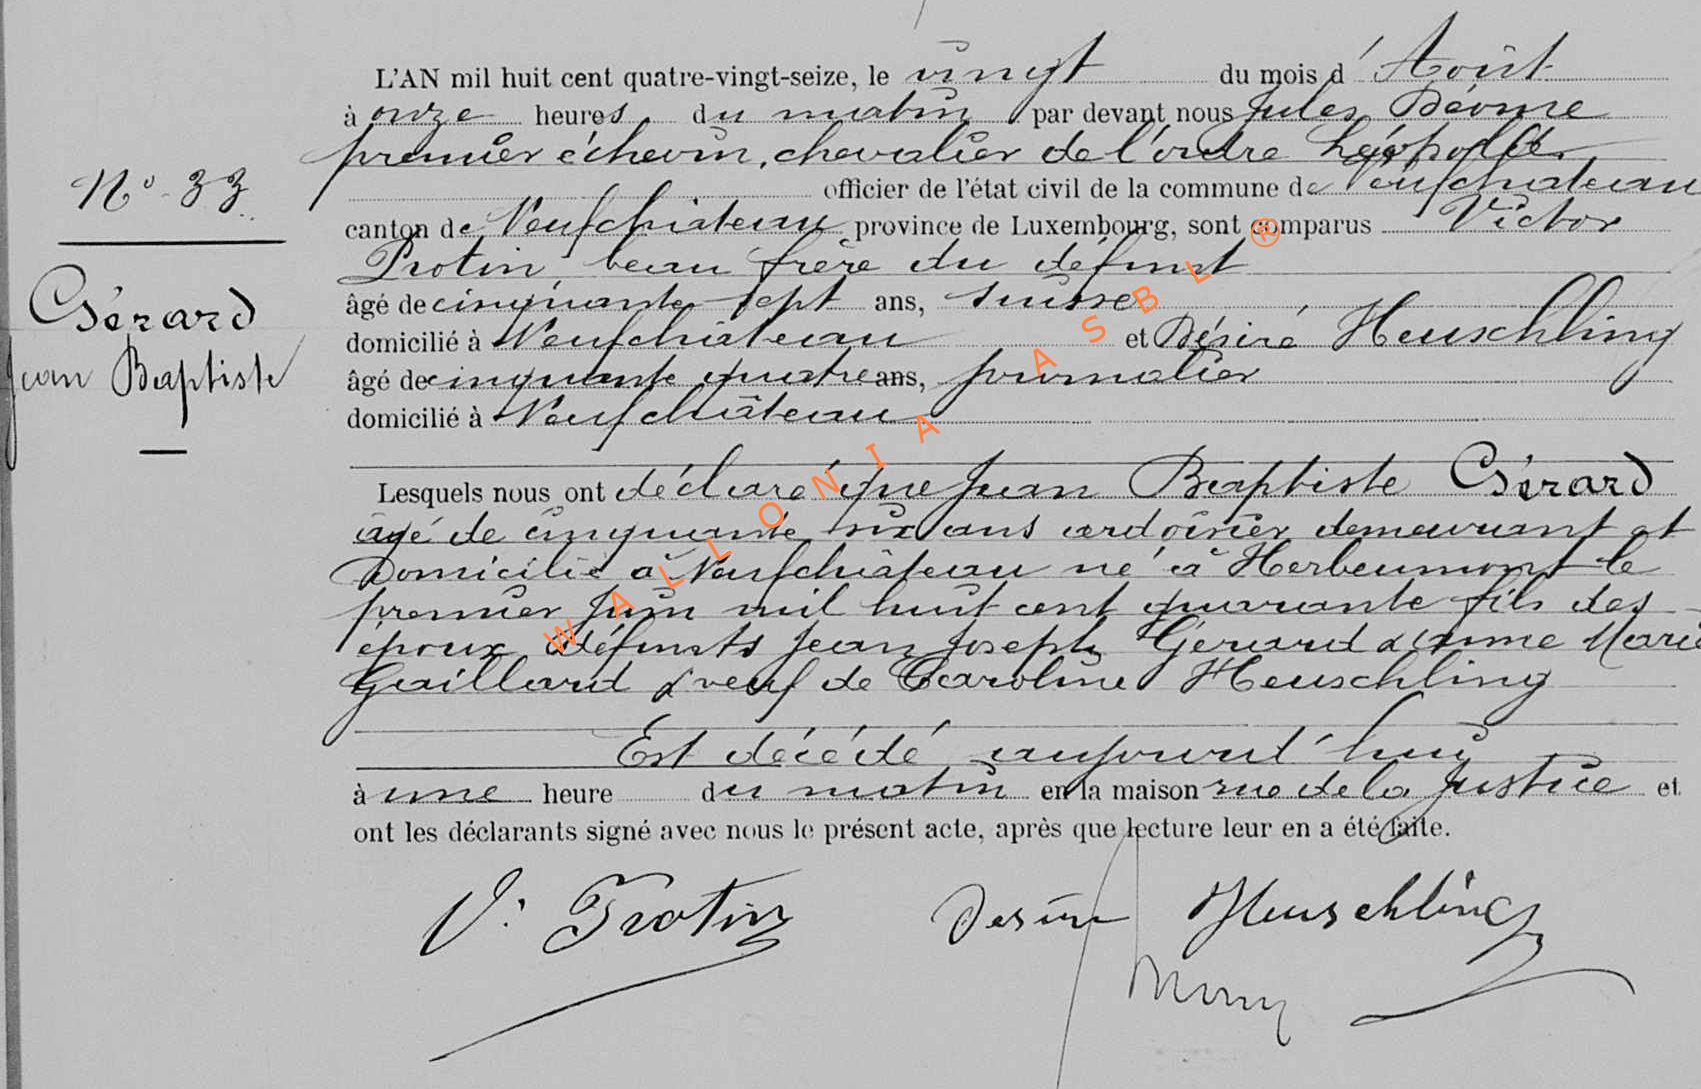 L'AN mil huit cent quatre-vingt-seize, le vingt du mois d'Août
à onze heures du matin par devant nous Jules
premier échevin, chevalier de l'ordre Léopold
officier de l'état civil de la commune de Neufchateau
canton de Neufchateau province de Luxembourg, sont comparus Victor
Protin beau frère du défunt
âgé de cinquante sept ans, suisse
domicilié à Neufchateau et Désiré Heuschling
âgé de cinquante quatre ans, journalier
domicilié à Neufchâteau
N° 33
Gérard
Jean Baptiste
Lesquels nous ont déclaré que Jean Baptiste Gérard
âgé de cinquante six ans ardoisier demeurant et
Domicilié à Neufchâteau né à Herbeumont le
premier Juin mil huit cent quarante fils des
époux défunts Jean Joseph Gérard & Anne Marie
Gaillard & veuf de Caroline Heuschling
Est décédé aujourd'hui
à une heure du matin en la maison rue de la Justice et
ont les déclarants signé avec nous le présent acte, après que lecture leur en a été faite.
V. Protin Desire Heuschling
WALLONIA ASBL ®